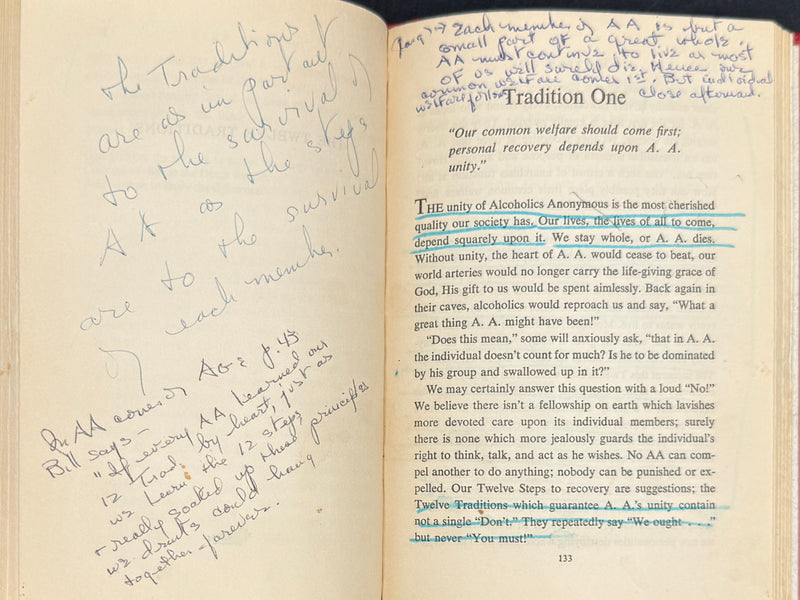 The Traditions
are as in part act
to the survival of
AA as the steps
are to the survival
of each member
In AA comes of Age p. 43
Bill says –
"If every AA learned our
12 Trad. by heart, just as
we learn the 12 steps
+ really soaked up these principles
we drunks could hang
together – forever.
→ Each member of AA is but a
small part of a great whole.
AA must continue to live or most
of us will surely die. Hence our
common welfare comes 1st. But individual
welfare follows close afterward.
Tradition One
"Our common welfare should come first;
personal recovery depends upon A. A.
unity."
THE unity of Alcoholics Anonymous is the most cherished
quality our society has. Our lives, the lives of all to come,
depend squarely upon it. We stay whole, or A. A. dies.
Without unity, the heart of A. A. would cease to beat; our
world arteries would no longer carry the life-giving grace of
God, His gift to us would be spent aimlessly. Back again in
their caves, alcoholics would reproach us and say, "What a
great thing A. A. might have been!"
"Does this mean," some will anxiously ask, "that in A. A.
the individual doesn't count for much? Is he to be dominated
by his group and swallowed up in it?"
We may certainly answer this question with a loud "No!"
We believe there isn't a fellowship on earth which lavishes
more devoted care upon its individual members; surely
there is none which more jealously guards the individual's
right to think, talk, and act as he wishes. No AA can com-
pel another to do anything; nobody can be punished or ex-
pelled. Our Twelve Steps to recovery are suggestions; the
Twelve Traditions which guarantee A. A.'s unity contain
not a single "Don't." They repeatedly say "We ought . . . ."
but never "You must!"
133